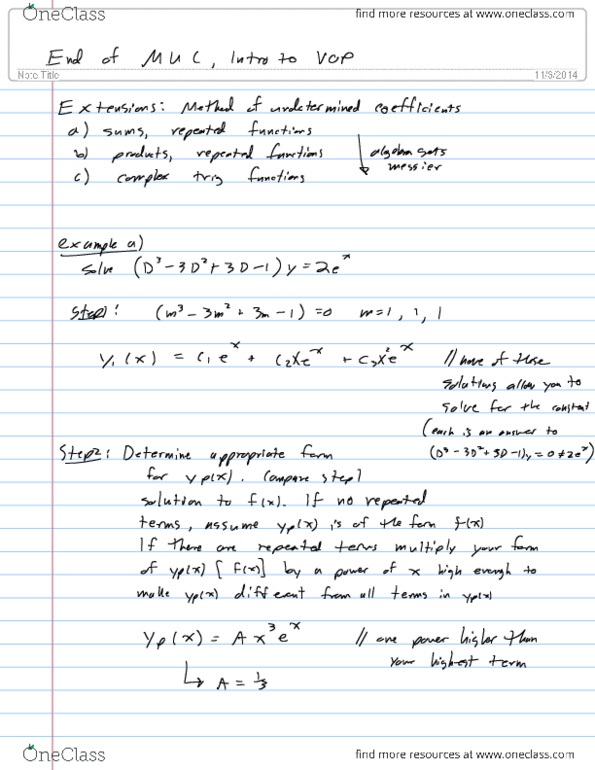 OneClass
find more resources at www.oneclass.com
End of MUC, Intro to VOP
Note Title
11/9/2014
Extensions: Method of undetermined coefficients
a) sums, repeated functions
b) products, repeated functions
algebra gets
messier
c) complex trig functions
example a)
solve (D³-3D²+3D-1)y=2eˣ
Step1: (m³-3m²+3m-1)=0 m=1, 1, 1
y₁(x) = c₁eˣ + c₂xeˣ + c₃x²eˣ
// none of these
solutions allow you to
solve for the constant
(each is an answer to
(D³-3D²+3D-1)y=0≠2eˣ)
Step2: Determine appropriate form
for yp(x). Compare step 1
solution to f(x). If no repeated
terms, assume yp(x) is of the form f(x)
If there are repeated terms multiply your form
of yp(x) [f(x)] by a power of x high enough to
make yp(x) different from all terms in yp(x)
yp(x) = Ax³eˣ
// one power higher than
your highest term
A = 1/3
OneClass
find more resources at www.oneclass.com